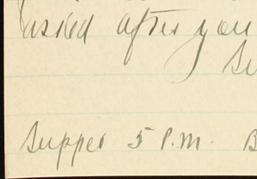 asked after you
Supper 5 P.M.